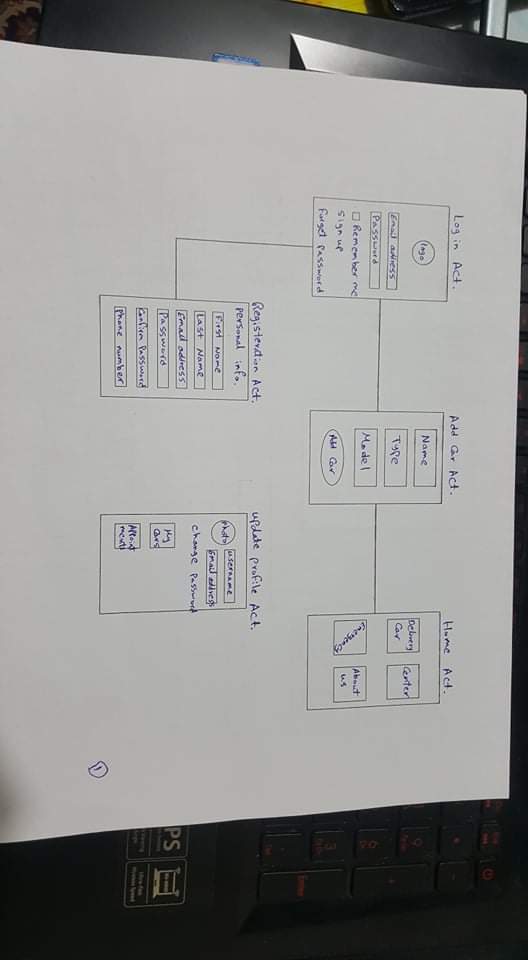 Log in Act.
logo
Email address
Password
Remember me
Sign up
Forget Password
Add Car Act.
Name
Type
Model
Add Car
Home Act.
Delivery
Car
Center
Emergency
About
us
Registeration Act.
Personal info.
First Name
Last Name
Email address
Password
Confirm Password
Phone number
update profile Act.
photo
username
Email address
change Password
My
Cars
Appoint
ments
1
9
6
3
Enter
PS
Ultra-Fast
Wireless Speed